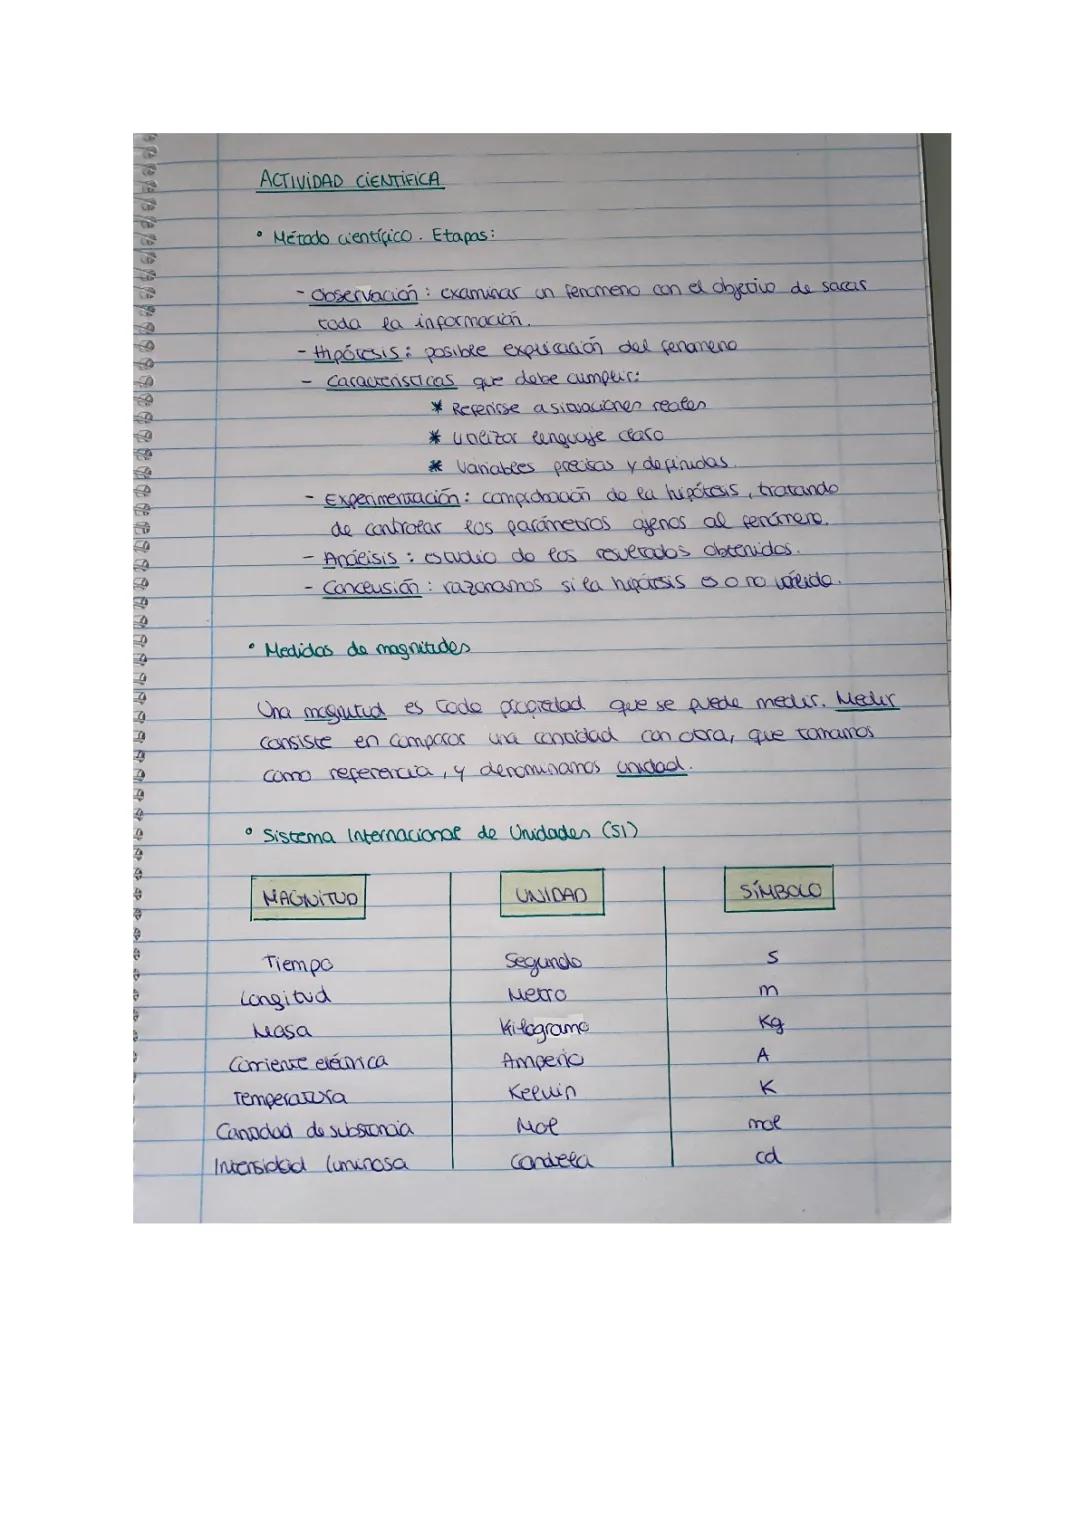 ACTIVIDAD CIENTÍFICA
• Método científico. Etapas:
- Observación: examinar un fenómeno con el objetivo de sacar
toda la información.
- Hipótesis: posible explicación del fenómeno
- Características que debe cumplir:
* Referirse a situaciones reales
* Utilizar lenguaje claro
* Variables precisas y definidas.
- Experimentación: comprobación de la hipótesis, tratando
de controlar los parámetros ajenos al fenómeno.
- Análisis: estudio de los resultados obtenidos.
- Conclusión: razonamos si la hipótesis es o no válida.
• Medidas de magnitudes
Una magnitud es toda propiedad que se puede medir. Medir
consiste en comparar una cantidad con otra, que tomamos
como referencia, y denominamos unidad.
• Sistema Internacional de Unidades (SI)
MAGNITUD UNIDAD SÍMBOLO
Tiempo Segundo s
Longitud Metro m
Masa Kilogramo Kg
Corriente eléctrica Amperio A
Temperatura Kelvin K
Cantidad de substancia Mol mol
Intensidad luminosa Candela cd